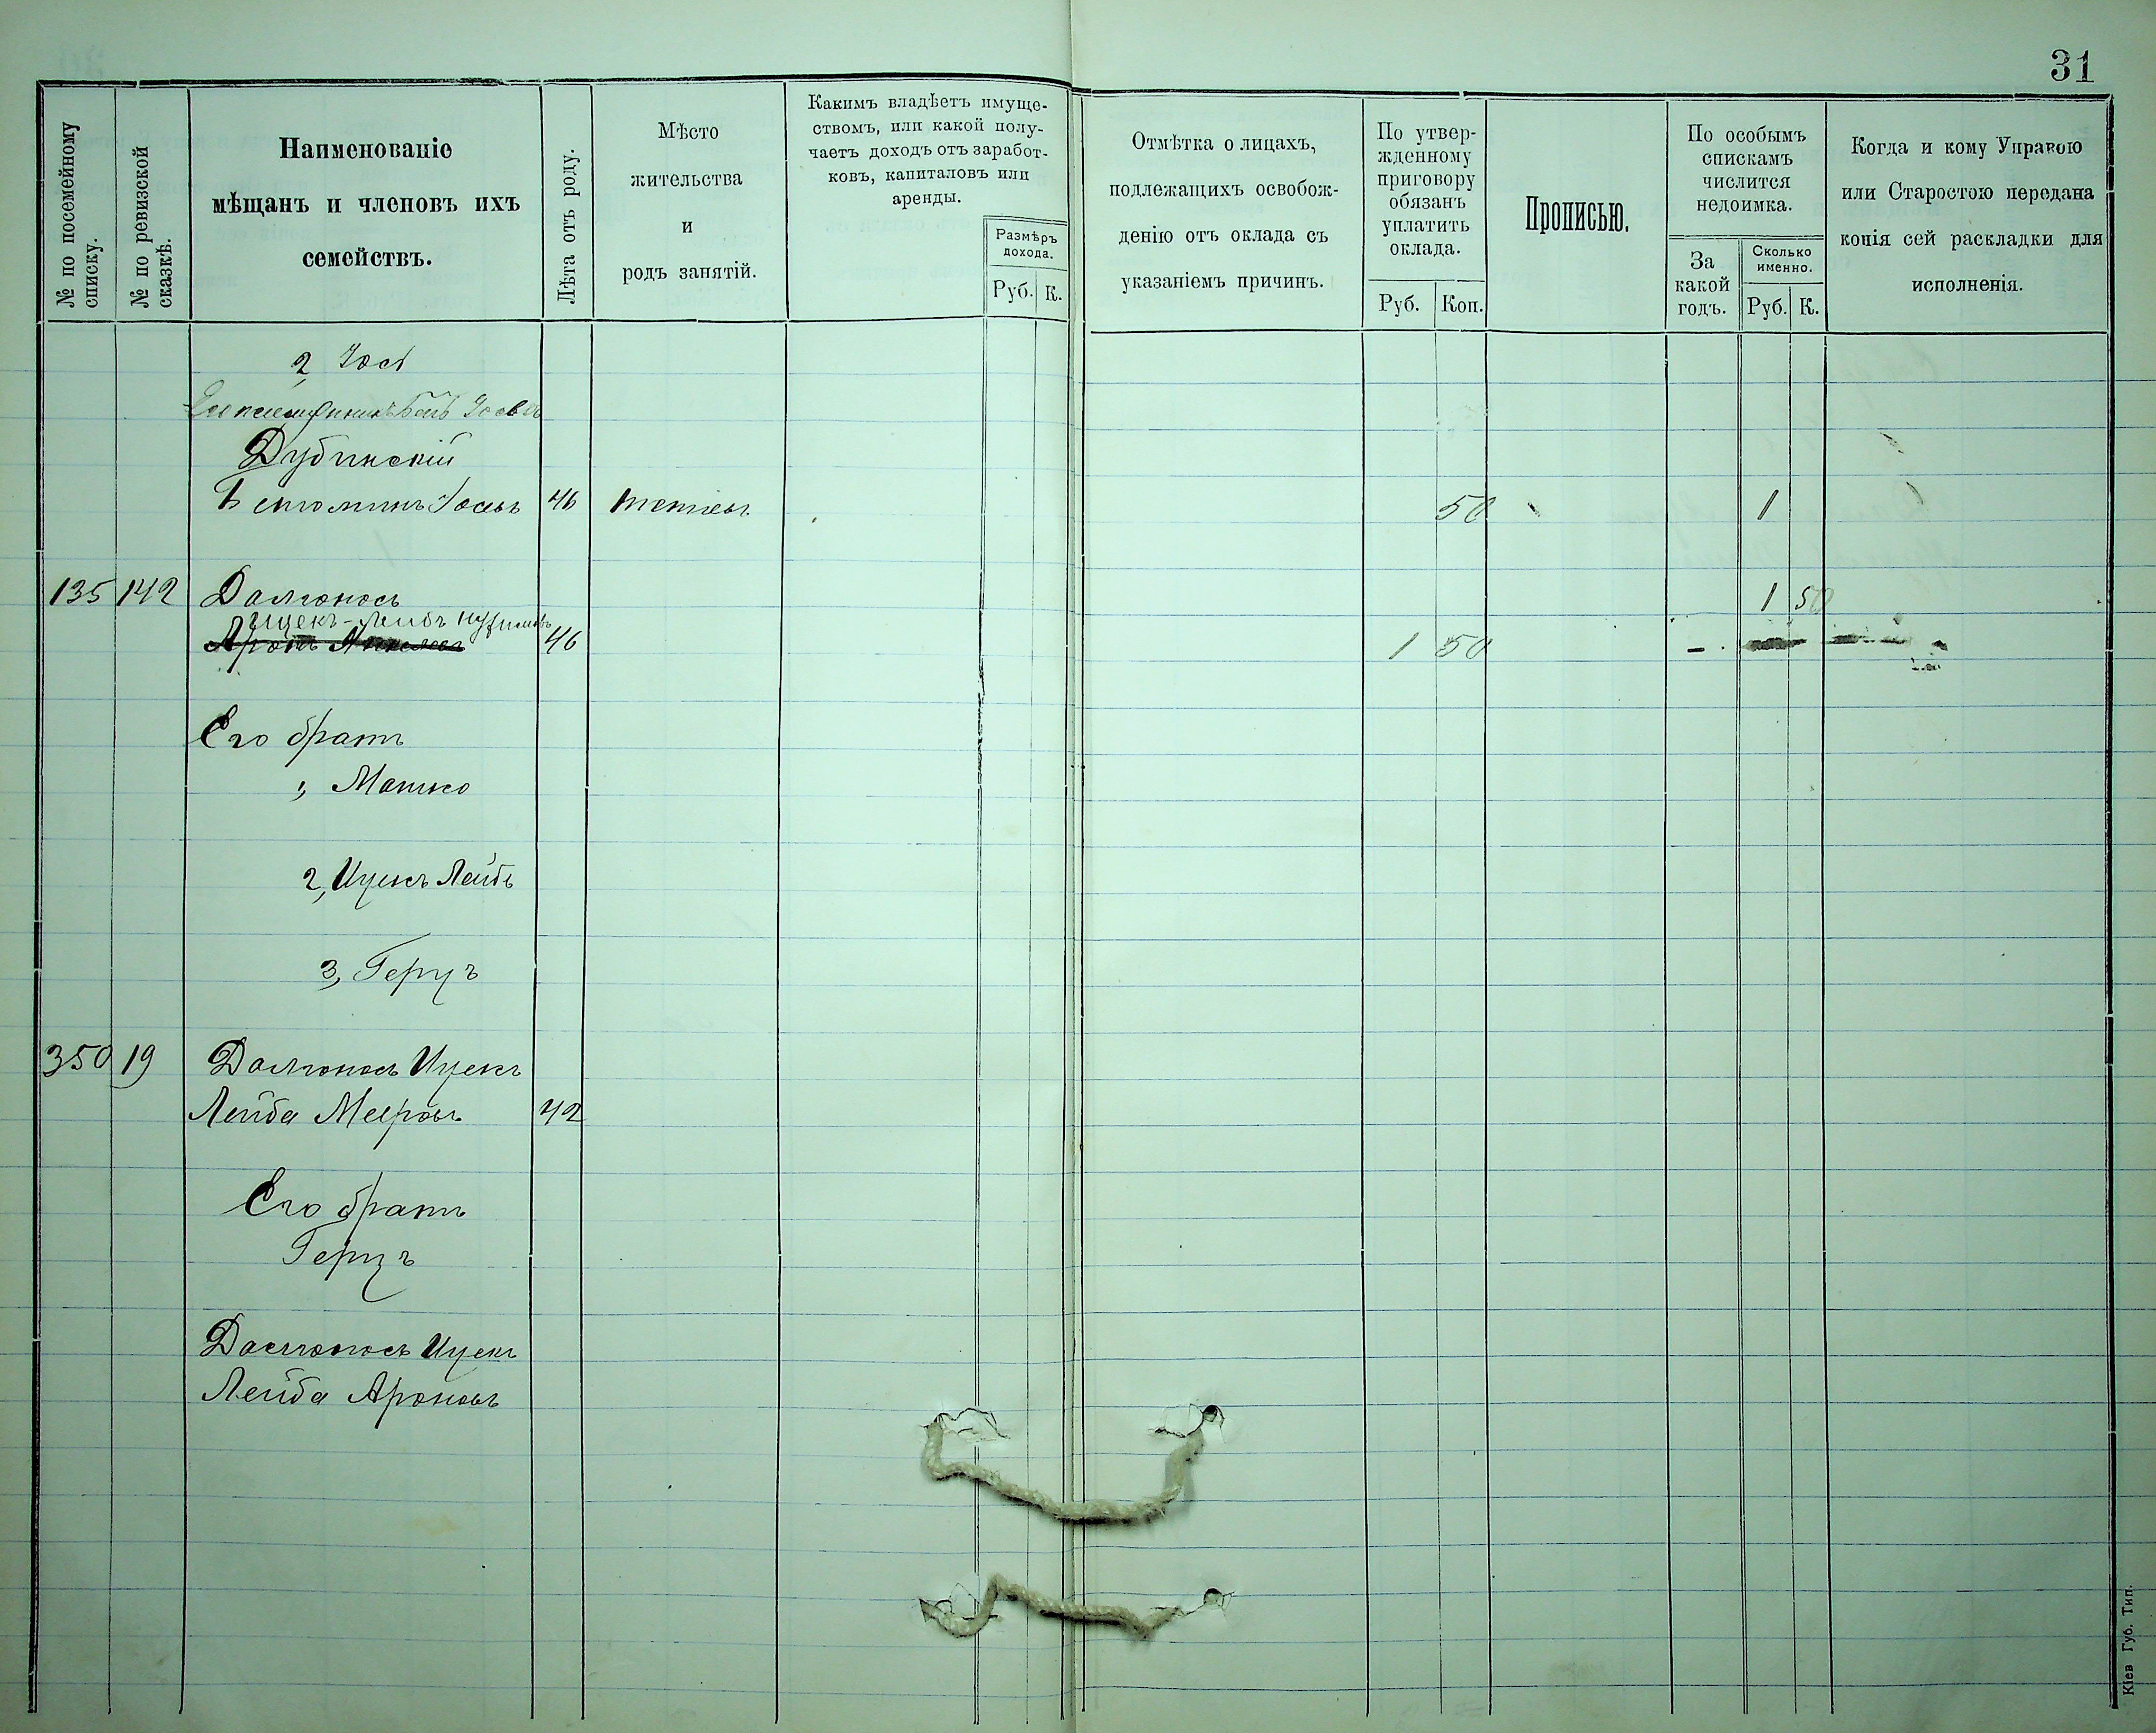 31
№ по посемейному списку.
№ по ревизской сказкѣ.
Наименованіе
мѣщанъ и членовъ ихъ
семействъ.
Лѣта отъ роду.
Мѣсто
жительства
и
родъ занятій.
Какимъ владѣетъ имуще-
ствомъ, или какой полу-
чаетъ доходъ отъ заработ-
ковъ, капиталовъ или
аренды.
Размѣръ
дохода.
Руб. К.
Отмѣтка о лицахъ,
подлежащихъ освобож-
денію отъ оклада съ
указаніемъ причинъ.
По утвер-
жденному
приговору
обязанъ
уплатить
оклада.
Руб. Коп.
Прописью.
По особымъ
спискамъ
числится
недоимка.
За
какой
годъ.
Сколько
именно.
Руб. К.
Когда и кому Управою
или Старостою передана
копія сей раскладки для
исполненія.
2, Іосѣ
Дубинскій
Іосевъ 46 50 1
135 142 Долгоносъ 1 50
Ицекъ-Лейбъ
Аронъ 46 1 50
Его братъ
1, Мошко
2, Ицекъ Лейбъ
3, Герцъ
350 19 Долгоносъ Ицекъ
Лейба Мееровъ 42
Его братъ
Герцъ
Долгоносъ Ицекъ
Лейба Ароновъ
Кіев Губ. Тип.